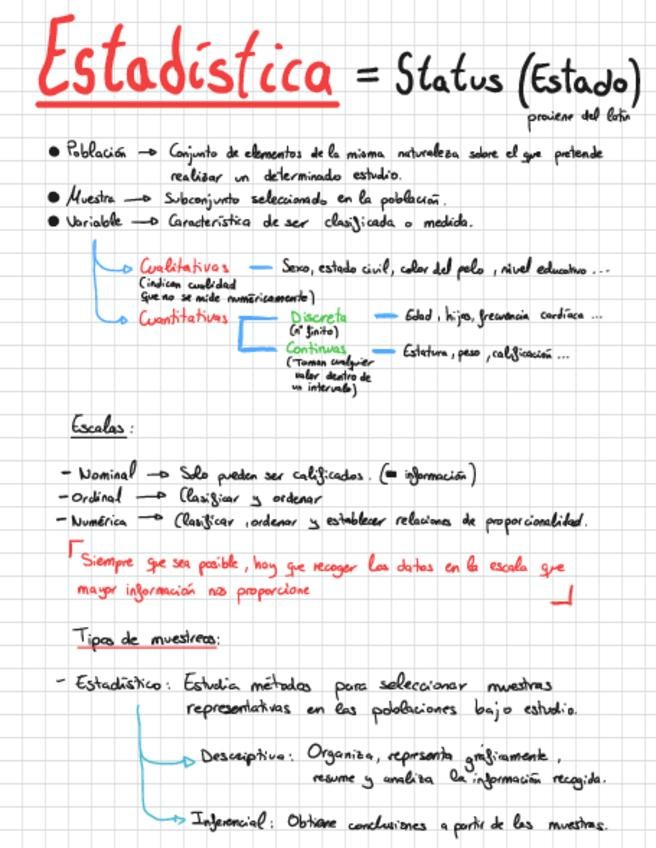 Estadística = Status (Estado)
proviene del latín
● Población → Conjunto de elementos de la misma naturaleza sobre el que pretende
realizar un determinado estudio.
● Muestra → Subconjunto seleccionado en la población.
● Variable → Característica de ser clasificada o medida.
Cualitativas — Sexo, estado civil, color del pelo, nivel educativo ...
(indican cualidad
que no se mide numéricamente)
Cuantitativas
Discreta — Edad, hijos, frecuencia cardíaca ...
(nº finito)
Continuas — Estatura, peso, calificación ...
(Toman cualquier
valor dentro de
un intervalo)
Escalas:
- Nominal → Solo pueden ser calificados. (- información)
- Ordinal → Clasificar y ordenar
- Numérica → Clasificar, ordenar y establecer relaciones de proporcionalidad.
Siempre que sea posible, hay que recoger los datos en la escala que
mayor información nos proporcione
Tipos de muestreos:
- Estadístico: Estudia métodos para seleccionar muestras
representativas en las poblaciones bajo estudio.
Descriptiva: Organiza, representa gráficamente,
resume y analiza la información recogida.
Inferencial: Obtiene conclusiones a partir de las muestras.